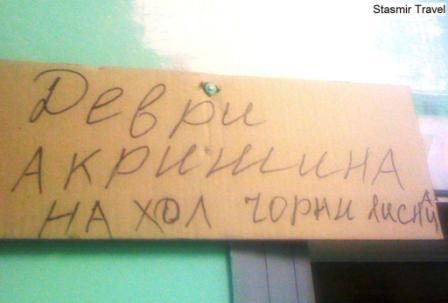 Stasmir Travel
Деври
акришина
на хол чорни лисна